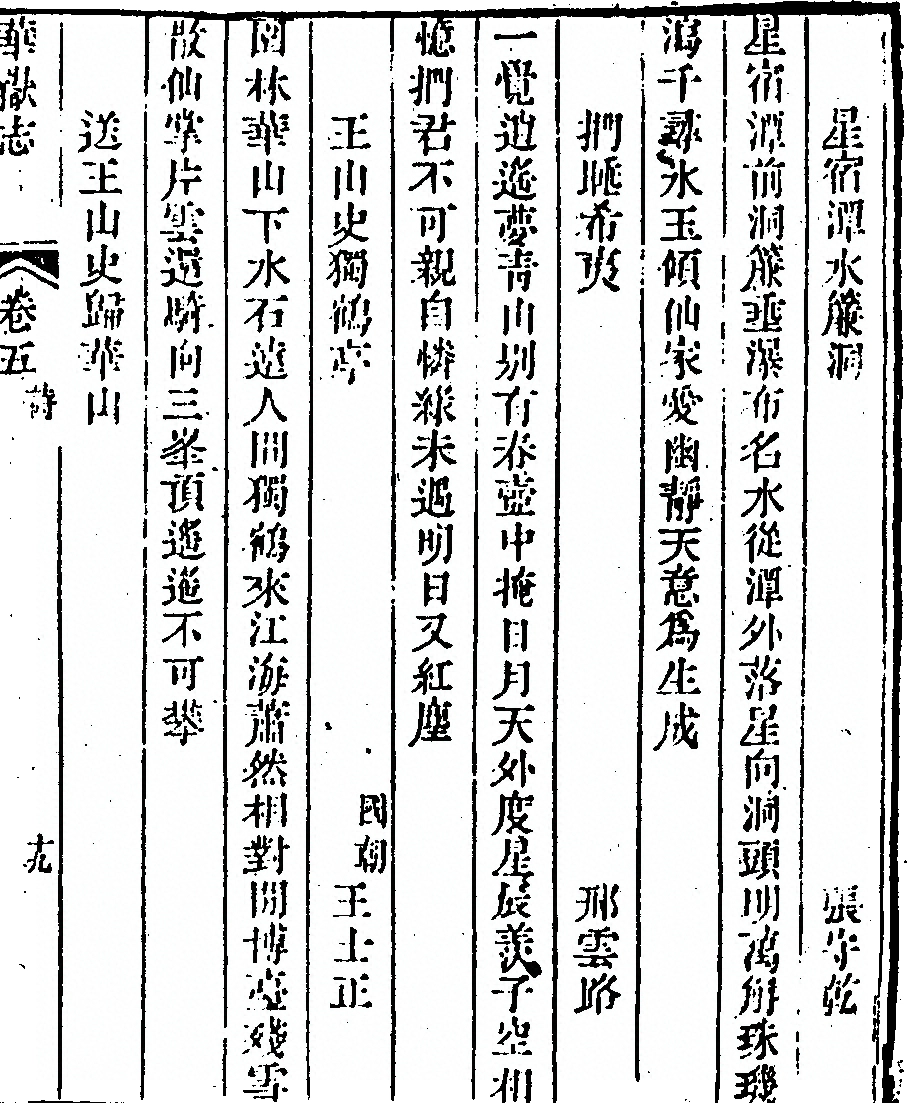 星宿潭水簾洞 張守乾
星宿潭前洞簾垂瀑布名水從潭外落星向洞頭明萬斛珠璣
瀉千尋氷玉傾仙家愛幽靜天意爲生成
捫睡希夷 邢雲路
一覺逍遙夢靑山别有春壺中掩日月天外度星辰羨子空相
憶捫君不可親自憐緣未遇明日又紅塵
王山史獨鶴亭 國朝王士正
園林華山下水石遠人間獨鶴來江海蕭然相對閒博臺殘雪
散仙掌片雲還騎向三峯頂遙遙不可攀
送王山史歸華山
華嶽志 卷五 詩 十九